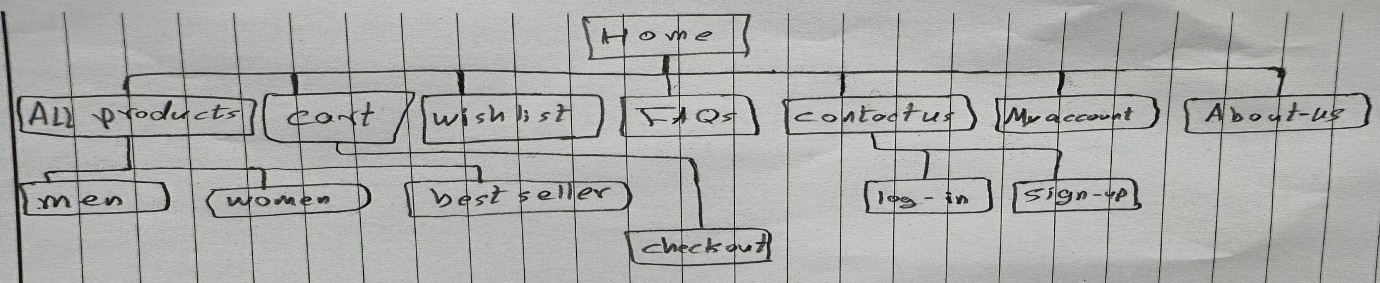 Home
ALL products cart wishlist FAQs contact us My account About-us
men women best seller log-in sign-up
checkout